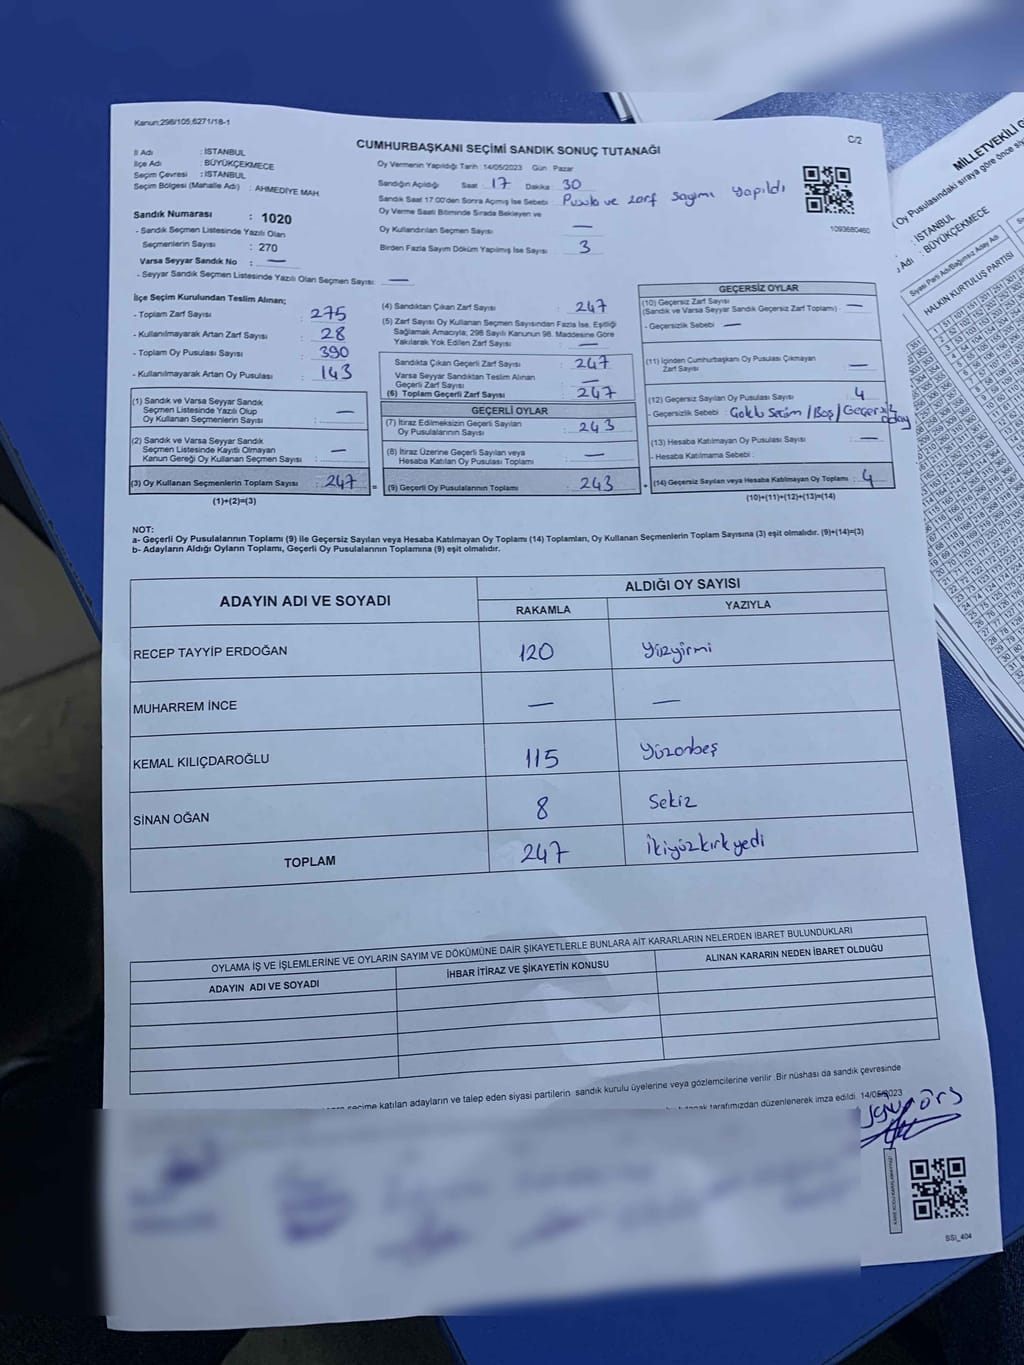 Kanun;298/105,6271/18-1
C/2
CUMHURBAŞKANI SEÇİMİ SANDIK SONUÇ TUTANAĞI
İl Adı : İSTANBUL
İlçe Adı : BÜYÜKÇEKMECE
Seçim Çevresi : İSTANBUL
Seçim Bölgesi (Mahalle Adı) : AHMEDİYE MAH.
Oy Vermenin Yapıldığı Tarih : 14/05/2023 Gün : Pazar
Sandığın Açıldığı Saat : 17 Dakika : 30
Sandık Saat 17:00'den Sonra Açılmış İse Sebebi : Pusula ve zarf sayımı yapıldı
Oy Verme Saati Bitiminde Sırada Bekleyen ve
Oy Kullandırılan Seçmen Sayısı : —
Birden Fazla Sayım Döküm Yapılmış İse Sayısı : 3
1093680460
Sandık Numarası : 1020
- Sandık Seçmen Listesinde Yazılı Olan
Seçmenlerin Sayısı : 270
Varsa Seyyar Sandık No : —
- Seyyar Sandık Seçmen Listesinde Yazılı Olan Seçmen Sayısı : —
İlçe Seçim Kurulundan Teslim Alınan;
- Toplam Zarf Sayısı : 275
- Kullanılmayarak Artan Zarf Sayısı : 28
- Toplam Oy Pusulası Sayısı : 390
- Kullanılmayarak Artan Oy Pusulası : 143
(1) Sandık ve Varsa Seyyar Sandık
Seçmen Listesinde Yazılı Olup
Oy Kullanan Seçmenlerin Sayısı : —
(2) Sandık ve Varsa Seyyar Sandık
Seçmen Listesinde Kayıtlı Olmayan
Kanun Gereği Oy Kullanan Seçmen Sayısı : —
(3) Oy Kullanan Seçmenlerin Toplam Sayısı : 247
(1)+(2)=(3)
(4) Sandıktan Çıkan Zarf Sayısı : 247
(5) Zarf Sayısı Oy Kullanan Seçmen Sayısından Fazla İse, Eşitliği
Sağlamak Amacıyla; 298 Sayılı Kanunun 98. Maddesine Göre
Yakılarak Yok Edilen Zarf Sayısı : —
Sandıkta Çıkan Geçerli Zarf Sayısı : 247
Varsa Seyyar Sandıktan Teslim Alınan
Geçerli Zarf Sayısı : —
(6) Toplam Geçerli Zarf Sayısı : 247
GEÇERLİ OYLAR
(7) İtiraz Edilmeksizin Geçerli Sayılan
Oy Pusulalarının Sayısı : 243
(8) İtiraz Üzerine Geçerli Sayılan veya
Hesaba Katılan Oy Pusulası Toplamı : —
= (9) Geçerli Oy Pusulalarının Toplamı : 243
GEÇERSİZ OYLAR
(10) Geçersiz Zarf Sayısı
(Sandık ve Varsa Seyyar Sandık Geçersiz Zarf Toplamı) : —
- Geçersizlik Sebebi : —
(11) İçinden Cumhurbaşkanı Oy Pusulası Çıkmayan
Zarf Sayısı : —
(12) Geçersiz Sayılan Oy Pusulası Sayısı : 4
- Geçersizlik Sebebi : Çoklu Seçim / Boş / Geçersiz aday
(13) Hesaba Katılmayan Oy Pusulası Sayısı : —
- Hesaba Katılmama Sebebi :
+ (14) Geçersiz Sayılan veya Hesaba Katılmayan Oy Toplamı : 4
(10)+(11)+(12)+(13)=(14)
NOT:
a- Geçerli Oy Pusulalarının Toplamı (9) ile Geçersiz Sayılan veya Hesaba Katılmayan Oy Toplamı (14) Toplamları, Oy Kullanan Seçmenlerin Toplam Sayısına (3) eşit olmalıdır. (9)+(14)=(3)
b- Adayların Aldığı Oyların Toplamı, Geçerli Oy Pusulalarının Toplamına (9) eşit olmalıdır.
ADAYIN ADI VE SOYADI ALDIĞI OY SAYISI
RAKAMLA YAZIYLA
RECEP TAYYİP ERDOĞAN 120 Yüzyirmi
MUHARREM İNCE — —
KEMAL KILIÇDAROĞLU 115 Yüzonbeş
SİNAN OĞAN 8 Sekiz
TOPLAM 247 İkiyüzkırkyedi
OYLAMA İŞ VE İŞLEMLERİNE VE OYLARIN SAYIM VE DÖKÜMÜNE DAİR ŞİKAYETLERLE BUNLARA AİT KARARLARIN NELERDEN İBARET BULUNDUKLARI
ADAYIN ADI VE SOYADI İHBAR İTİRAZ VE ŞİKAYETİN KONUSU ALINAN KARARIN NEDEN İBARET OLDUĞU
seçime katılan adayların ve talep eden siyasi partilerin sandık kurulu üyelerine veya gözlemcilerine verilir .Bir nüshası da sandık çevresinde
tarafımızdan düzenlenerek imza edildi. 14/05/2023
SSİ_404
MİLLETVEKİLİ
Oy Pusulasındaki sıraya göre önce
: İSTANBUL
Adı : BÜYÜKÇEKMECE
Siyasi Parti Adı/Bağımsız Aday Adı
HALKIN KURTULUŞ PARTİSİ